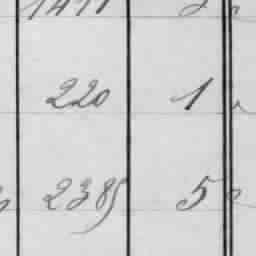 220 1
2385 5